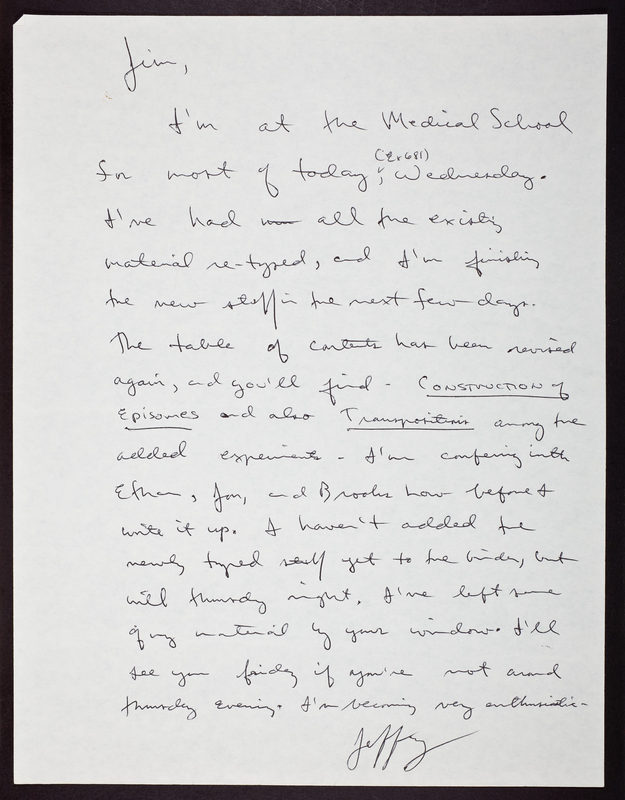 Jim,
I'm at the Medical School
for most of today, (Ex681) Wednesday.
I've had all the existing
material re-typed, and I'm finishing
the new stuff in the next few days.
The table of contents has been revised
again, and you'll find - CONSTRUCTION of
EPISOMES and also TRANSPOSITIONS among the
added experiments - I'm conferring with
Ethan, Jon, and Brooks now before I
write it up. I haven't added the
newly typed stuff yet to the binder, but
will thursday night. I've left some
of my material by your window. I'll
see you friday if you're not around
thursday evening. I'm becoming very enthusiastic -
Jeffrey